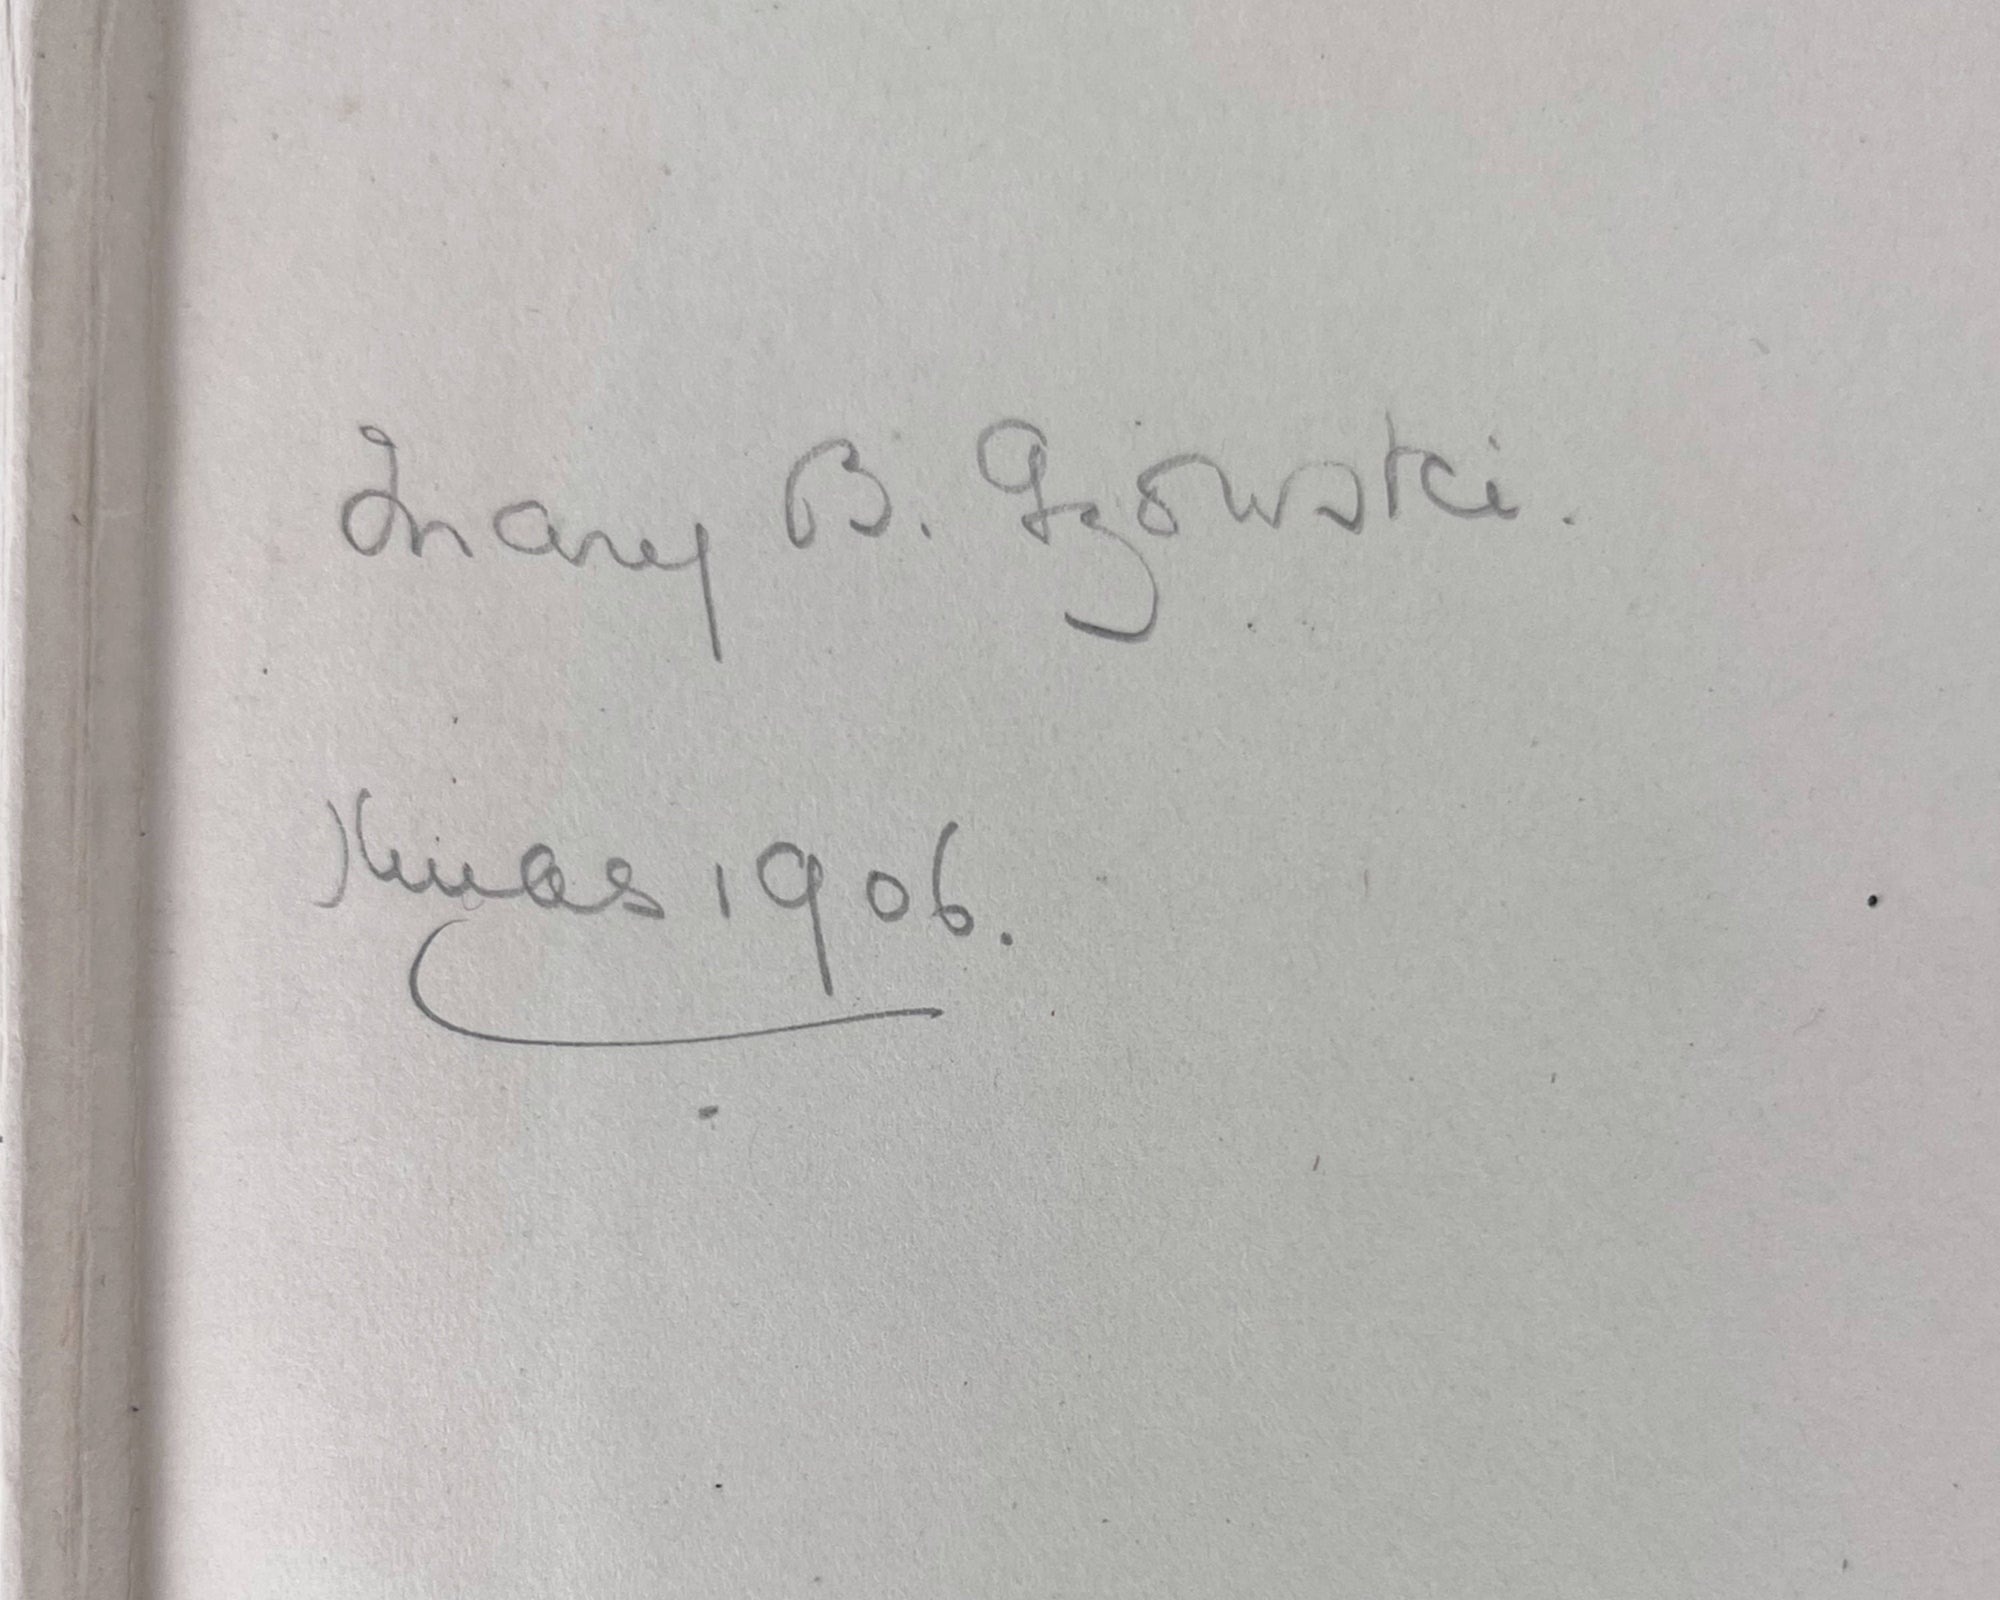 Mary B. Gzowski.
Xmas 1906.